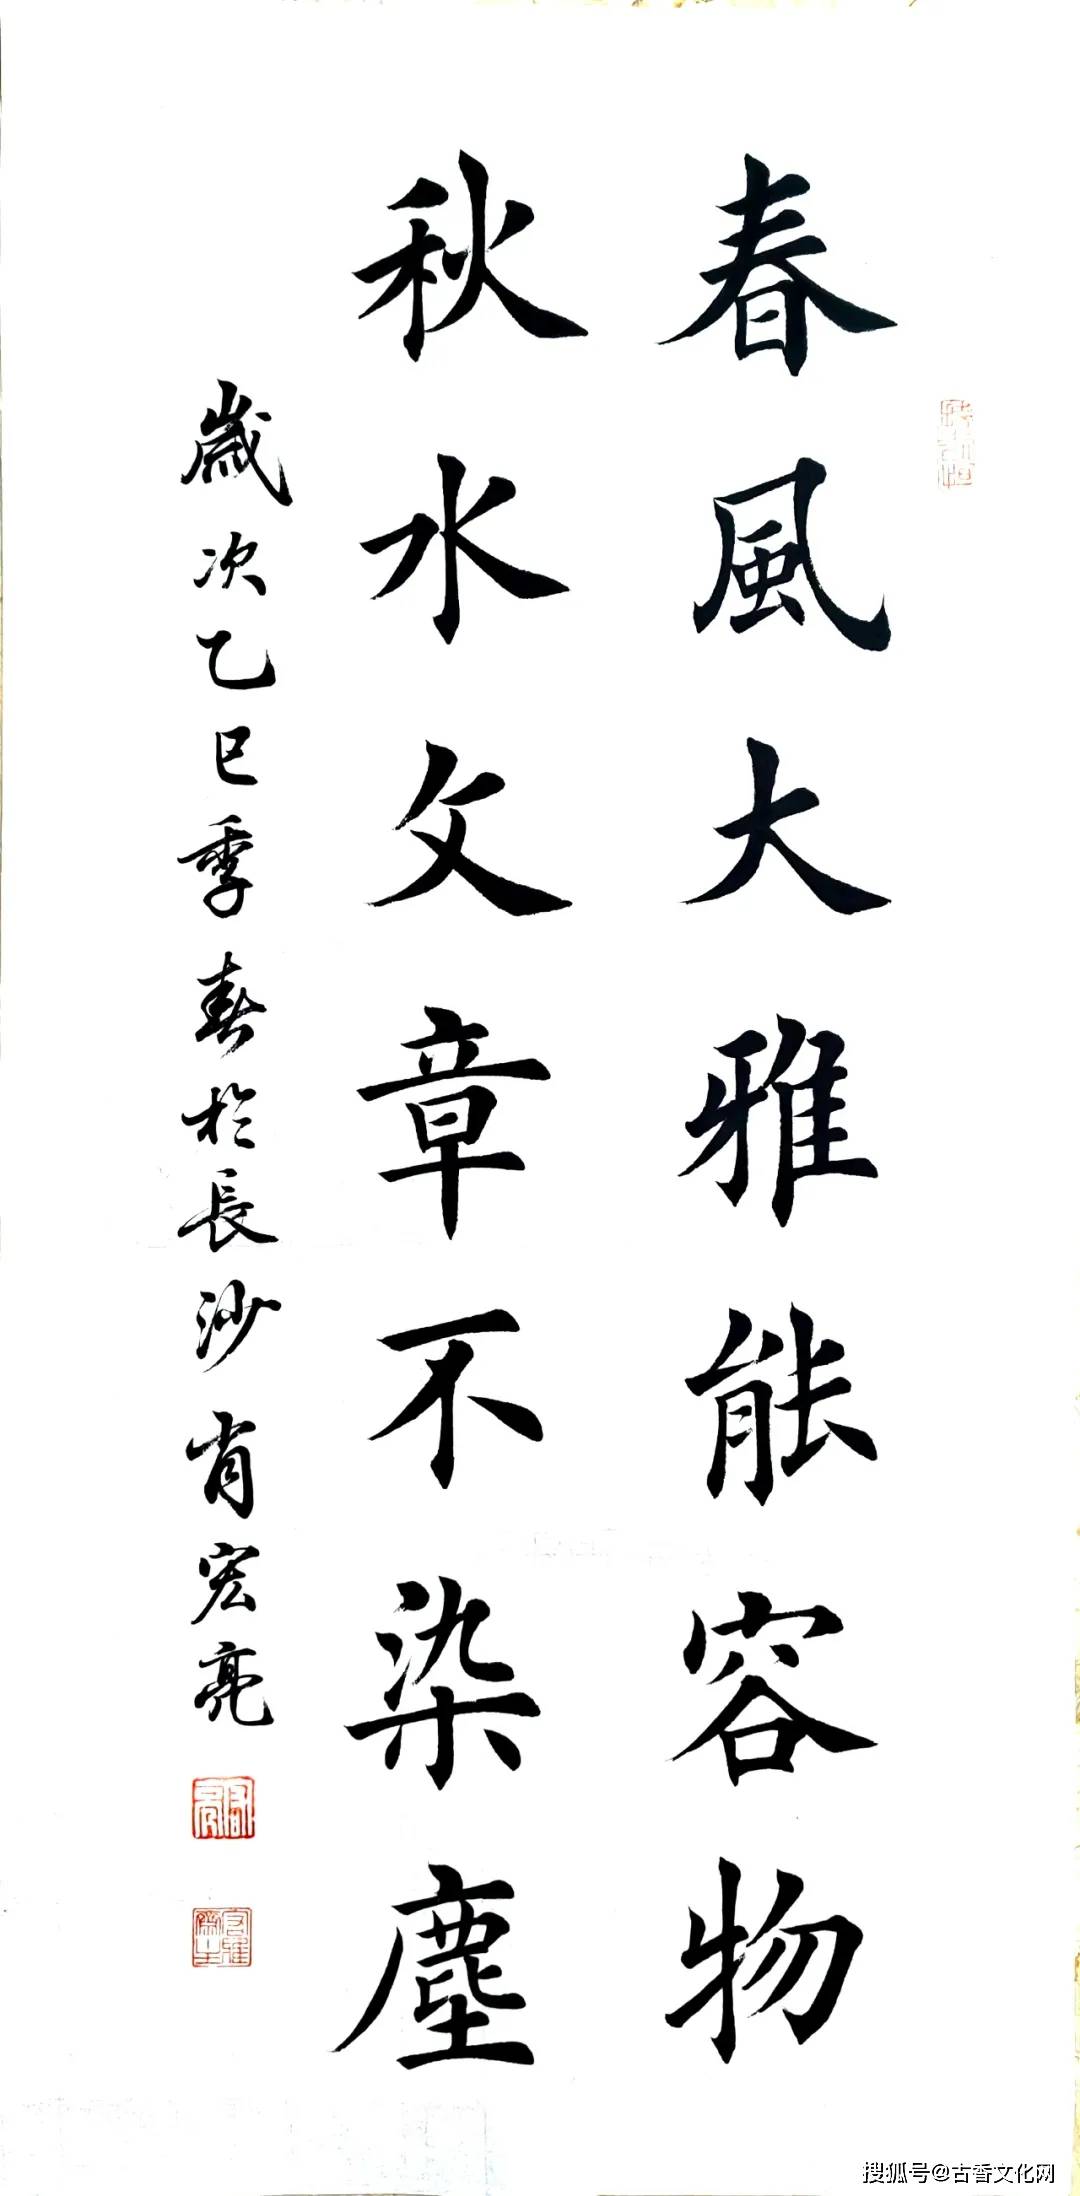 春風大雅能容物
秋水文章不染塵
歲次乙巳季春於長沙肖宏亮
搜狐号@古香文化网